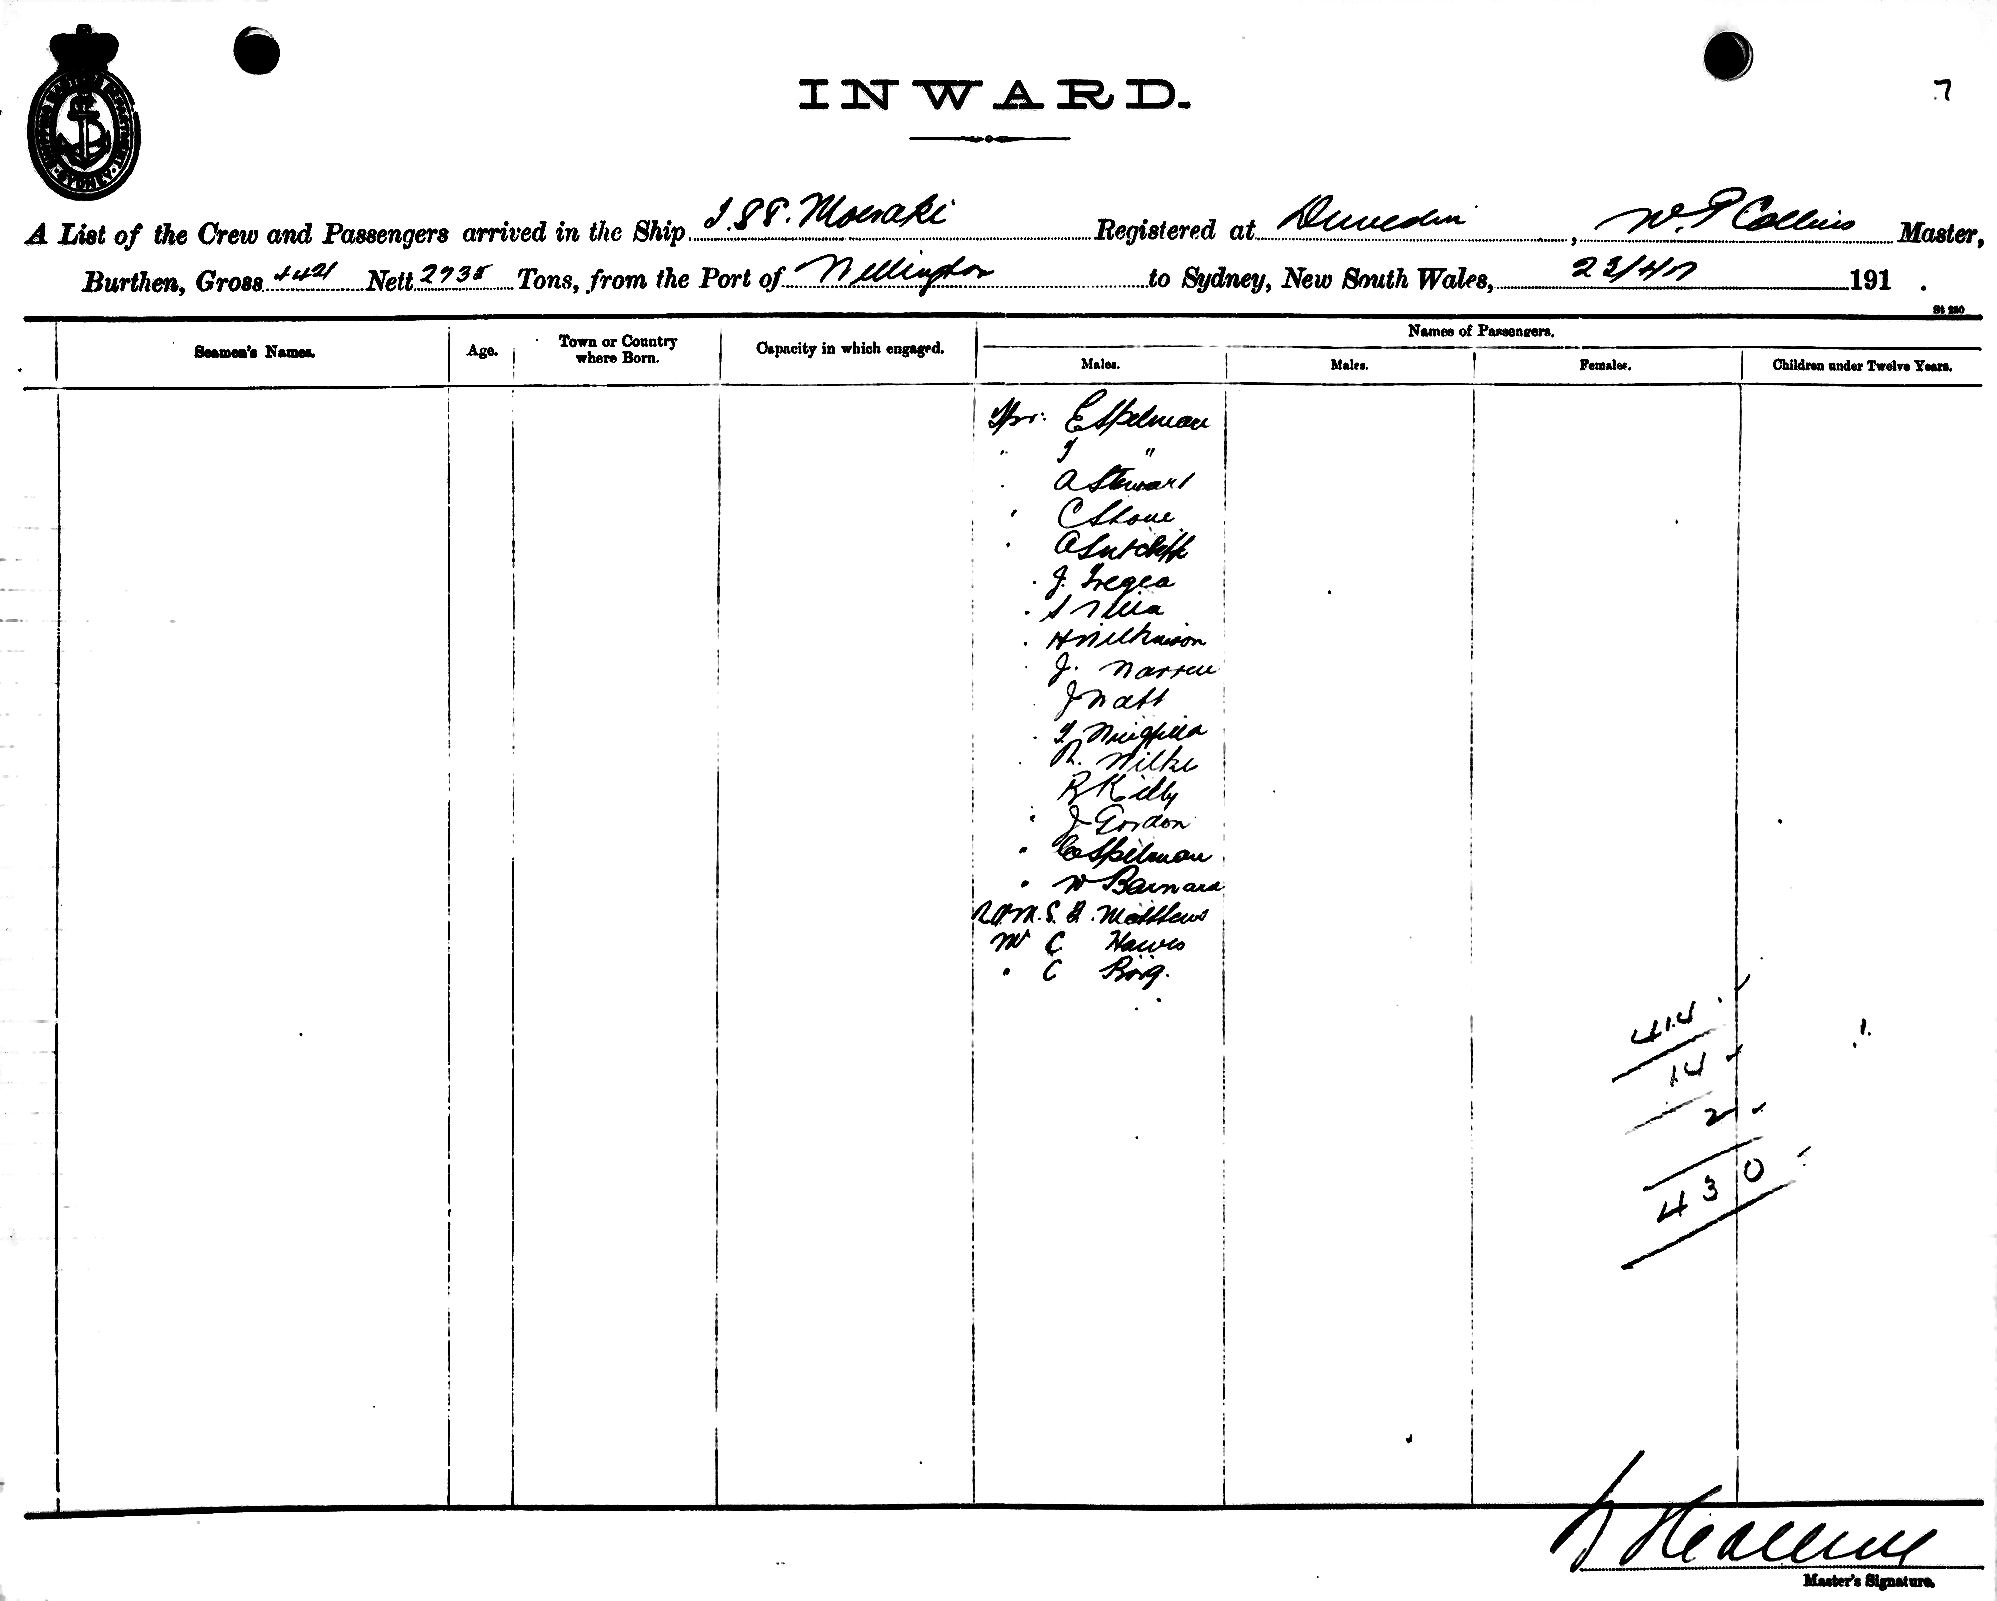 INWARD.
7
A List of the Crew and Passengers arrived in the Ship Moeraki Registered at Dunedin, W. P Collins Master,
Burthen, Gross 4421 Nett 2735 Tons, from the Port of Wellington to Sydney, New South Wales, 191 .
Seamen's Names. Age. Town or Country where Born. Capacity in which engaged. Names of Passengers.
Males. Males. Females. Children under Twelve Years.
Spr. E Spelman
" "
A Stewart
C Stone
A Sutcliff
J. Tregea
H Wilkinson
J. Warren
J Watt
R. Wilke
R Kelly
J Gordon
C Spelman
W Barnard
Matthews
Mr C Hawes
" C
414
14
2
430
Master's Signature.
SYDNEY